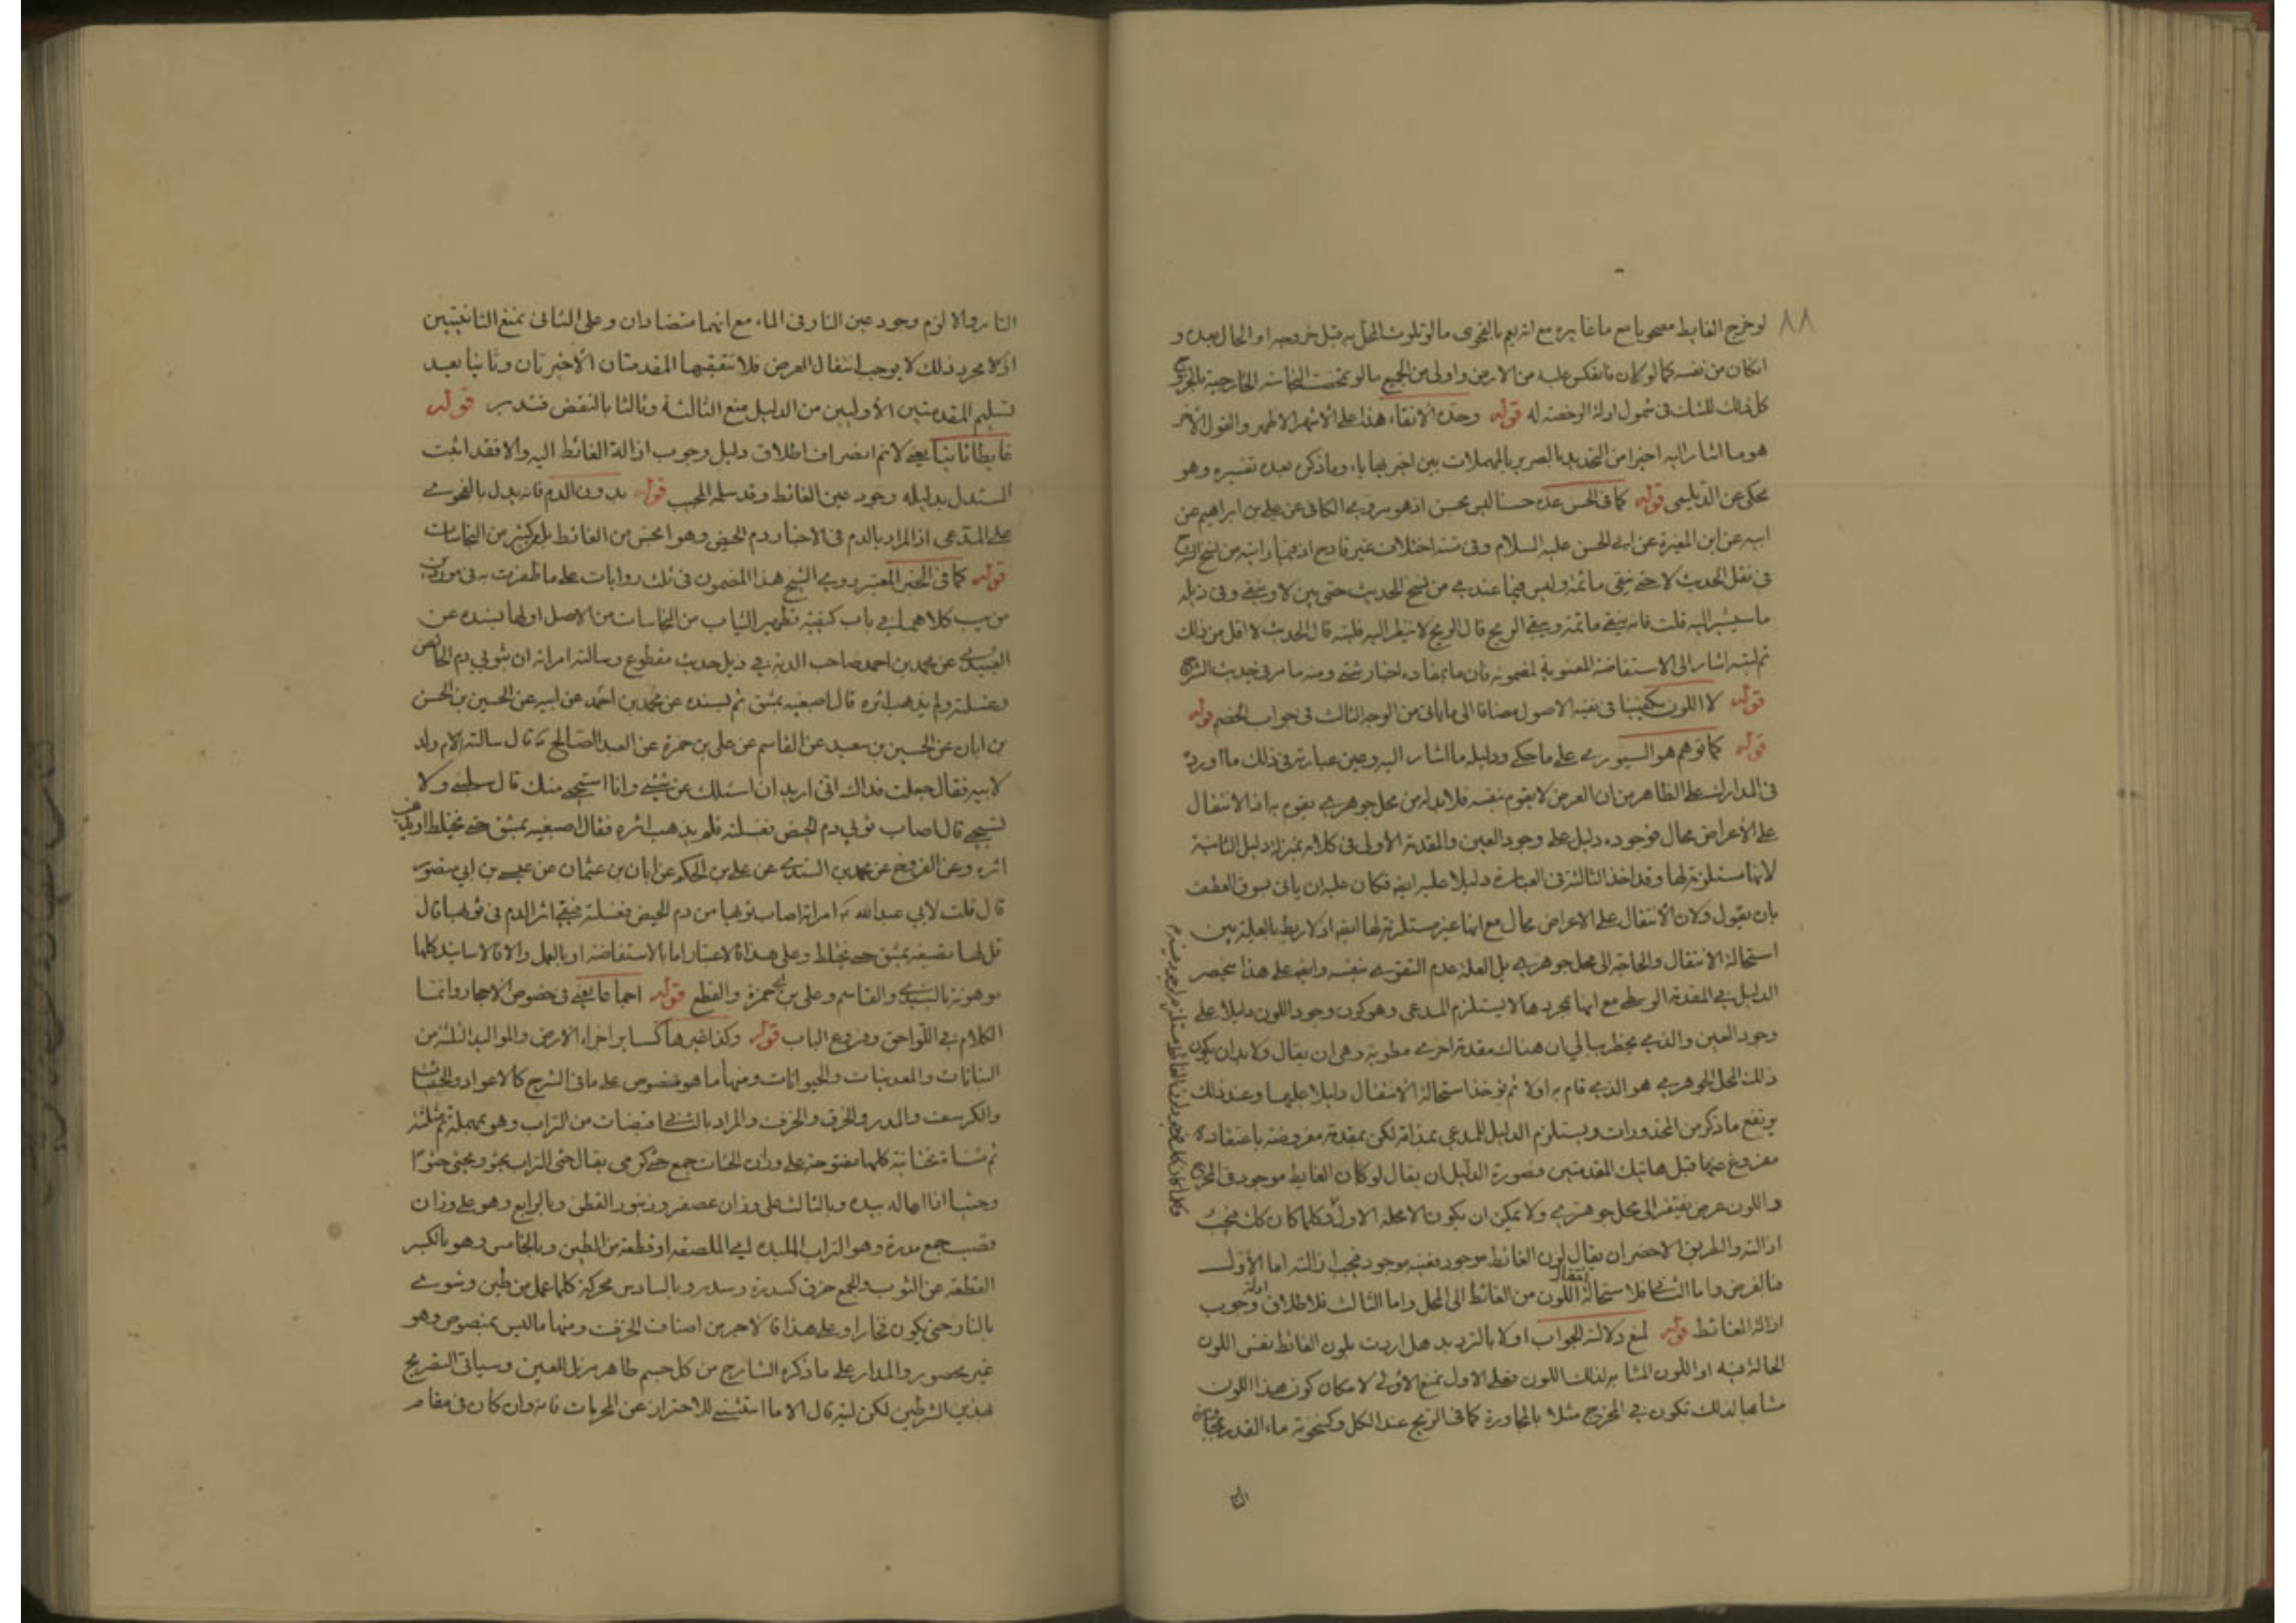 ٨٨
لو خرج الغايط مصحوبا مع ما غايره مع انه يعم بالفحوى ما لو تلوث المحل به قبل خروجه او الحال بعده و
انكان من نفسه كما لو كان فانعكس عليه من الارض واولى من الجميع ما لو تمحضت النجاسة الخارجية بالمخرج
كل ذلك للشك فى شمول ادلة الرخصة له قوله وحده الانقاء هذا على الاشهر الاظهر والقول الآخر
هو ما اشار اليه اخيرا من التحديد بالصرير بالمهملات بين اخير وماذكره بعده تفسيره وهو
محكى عن الديلمى قوله كما فى الحسن عده حسنا ليس بحسن اذ هو مروى فى الكافى عن على بن ابراهيم عن
ابيه عن ابن المغيرة عن ابى الحسن عليه السلام وفى متنه اختلاف غير قادح اذ فيما رايته من نسخ الشرح
فى نقل الحديث لا حتى ينقى ما ثمة وليس فيما عندى من نسخ الحديث حتى بين لا وينقى وفى ذيله
ما سيشير اليه قلت فانه ينقى ما ثمة ويبقى الريح قال الريح لا ينظر اليه فليته قال الحديث لا اقل من ذلك
ثم ليته اشار الى الاستفاضة المعنوية لمضمونه فان ما بمفاده اخبار شتى ومنه ما مر فى حديث الشرج
قوله لا اللون يكفينا فى نفيه الاصول مضافا الى ما ياتى من الوجه الثالث فى جواب الخصم قوله
قوله كما توهم هو السيورى على ما حكى ودليله ما اشار اليه وعين عبارته فى ذلك ما اورده
فى المدارك على الظاهر من ان العرض لا يقوم بنفسه فلا بد له من محل جوهرى يقوم به اذ الانتقال
على الأعراض محال فوجوده دليل على وجود العين والمقدمة الأولى فى كلامه بمنزلة دليل الثانية
لانها مستلزمة لها وقد اخذ الثالثة فى العبارة دليلا عليه ايضا فكان عليه ان ياتى بسوق العطف
بان يقول ولان الانتقال على الاعراض محال مع انها غير مستلزمة لها ايضا اذ لا ربط بالعلية بين
استحالة الانتقال والحاجة الى محل جوهرى بل العلة عدم التقوى بنفسه وايضا على هذا ينحصر
الدليل فى المقدمة الوسطى مع انها بمجردها لا يستلزم المدعى وهو كون وجود اللون دليلا على
وجود العين والذى يخطر ببالى ان هناك مقدمة اخرى مطوية وهى ان يقال ولا بد ان يكون
ذلك المحل الجوهرى هو الذى قام به اولا ثم يؤخذ استحالة الانتقال دليلا عليها وعند ذلك
يرتفع ما ذكر من المحذورات ويستلزم الدليل للمدعى بمذاقه لكن بمقدمة مفروضة باعتقاده
مفروغ عنها قبل هاتيك المقدمتين فصورة الدليل ان يقال لو كان الغايط موجود فى المخرج
واللون عرض يفتقر الى محل جوهرى ولا يمكن ان يكون الا محله الاول وكلما كان كك فيجب
ازالته والطريق الاخصر ان يقال لون الغائط موجود فعينه موجود فيجب ازالته اما الأول
فالفرض واما الثانى فلاستحالة انتقال اللون من الغائط الى المحل واما الثالث فلاطلاق ادلة وجوب
ازالة الغائط قوله لمنع دلالته الجواب اولا بالترديد هل اردت بلون الغائط نفس اللون
الحالة فيه او اللون المشابه لذلك اللون فعلى الاول نمنع الأولى لامكان كون هذا اللون
مشابها لذلك تكون فى المخرج مثلا بالمجاورة كما فى الريح عند الكل وكسخونة ماء القدر بمجاورة
النار
النار والا لزم وجود عين النار فى الماء مع انهما متضادان وعلى الثانى نمنع الثانيتين
اذ لا مجرد ذلك لا يوجب انتقال العرض فلا تتعقبها المقدمتان الأخيرتان وثانيا بعد
تسليم المقدمتين الأوليين من الدليل منع الثالثة وثالثا بالنقض فتدبر قوله
غايطا ثانيا يعنى لا نم انصراف اطلاق دليل وجوب ازالة الغائط اليه والا فقد اثبت
المستدل بدليله وجود عين الغائط وقد سلمه المجيب قوله بدون الدم فانه يدل بالفحوى
على المدعى اذ المراد بالدم فى الاخبار دم الحيض وهو افحش من الغائط بل وكثير من النجاسات
قوله كما فى الخبر المعتبر روى الشيخ هذا المضمون فى ثلث روايات على ما ظفرت به فى موردين
من يب كلاهما فى باب كيفية تطهير الثياب من النجاسات من الاصل اولها بسنده عن
العبيدى عن محمد بن احمد صاحب الدنة فى ذيل حديث مقطوع وسالته امراة ان بثوبى دم الحائض
وغسلته ولم يذهب اثره قال اصبغيه بمشق ثم بسنده عن محمد بن احمد عن ابيه عن الحسين بن الحسن
بن ابان عن الحسين بن سعيد عن القاسم عن على بن حمزة عن العبد الصالح ع قال سالته ام ولد
لابيه فقال جعلت فداك انى اريد ان اسئلك عن شئ وانا استحيى منك قال سلينى ولا
تستحيى قال اصاب ثوبى دم الحيض فغسلته فلم يذهب اثره فقال اصبغيه بمشق حتى يختلط او يذهب
اثره وعن الفروخ عن محمد بن السندى عن على بن الحكم عن ابان بن عثمان عن عيسى بن ابى منصور
قال قلت لابى عبدالله ع امراة اصاب ثوبها من دم الحيض فغسلته فبقى اثر الدم فى ثوبها قال
قل لها تصبغه بمشق حتى يختلط وعلى هذا فالاعتبار اما بالاستفاضة او بالعمل والا فالاسانيد كلها
موهونة بالسندى والقاسم وعلى بن حمزة والقطع قوله اجماعا يعنى فى خصوص الاحجار وانما
الكلام فى اللواحق وفروع الباب قوله وكذا غيرها كساير اجزاء الارض والمواليد الثلثة من
النباتات والمعدنيات والحيوانات ومنها ما هو منصوص على ما فى الشرح كالاعواد والحثيات
والكرسف والمدر والخرق والخزف والمراد بالثانى قبضات من التراب وهو بمهملة ثم مثلثة
ثم مثناة تحتانية كلها مفتوحة على وزان الحثات جمع حثى كرمى يقال حثى التراب يحثو ويحثى حثوا
وحثيا اذا اهاله بيده وبالثالث على وزان عصفر وزنبور القطن وبالرابع وهو على وزان
قصب جمع مدرة وهو التراب الملبد اى الملصقه او قطعة من الطين وبالخامس وهو بالكسر
القطعة من الثوب والجمع خرق كسدرة وسدر وبالسادس محركة كلما عمل من طين وشوى
بالنار حتى يكون فخارا وعلى هذا فالاجر من اصناف الخزف ومنها ما ليس بمنصوص وهو
غير محصور والمدار على ما ذكره الشارح من كل جسم طاهر مزيل للعين وسياتى التصريح
بهذين الشرطين لكن ليته قال الا ما استثنى للاحتراز عن المحرمات فانه وان كان فى مقام